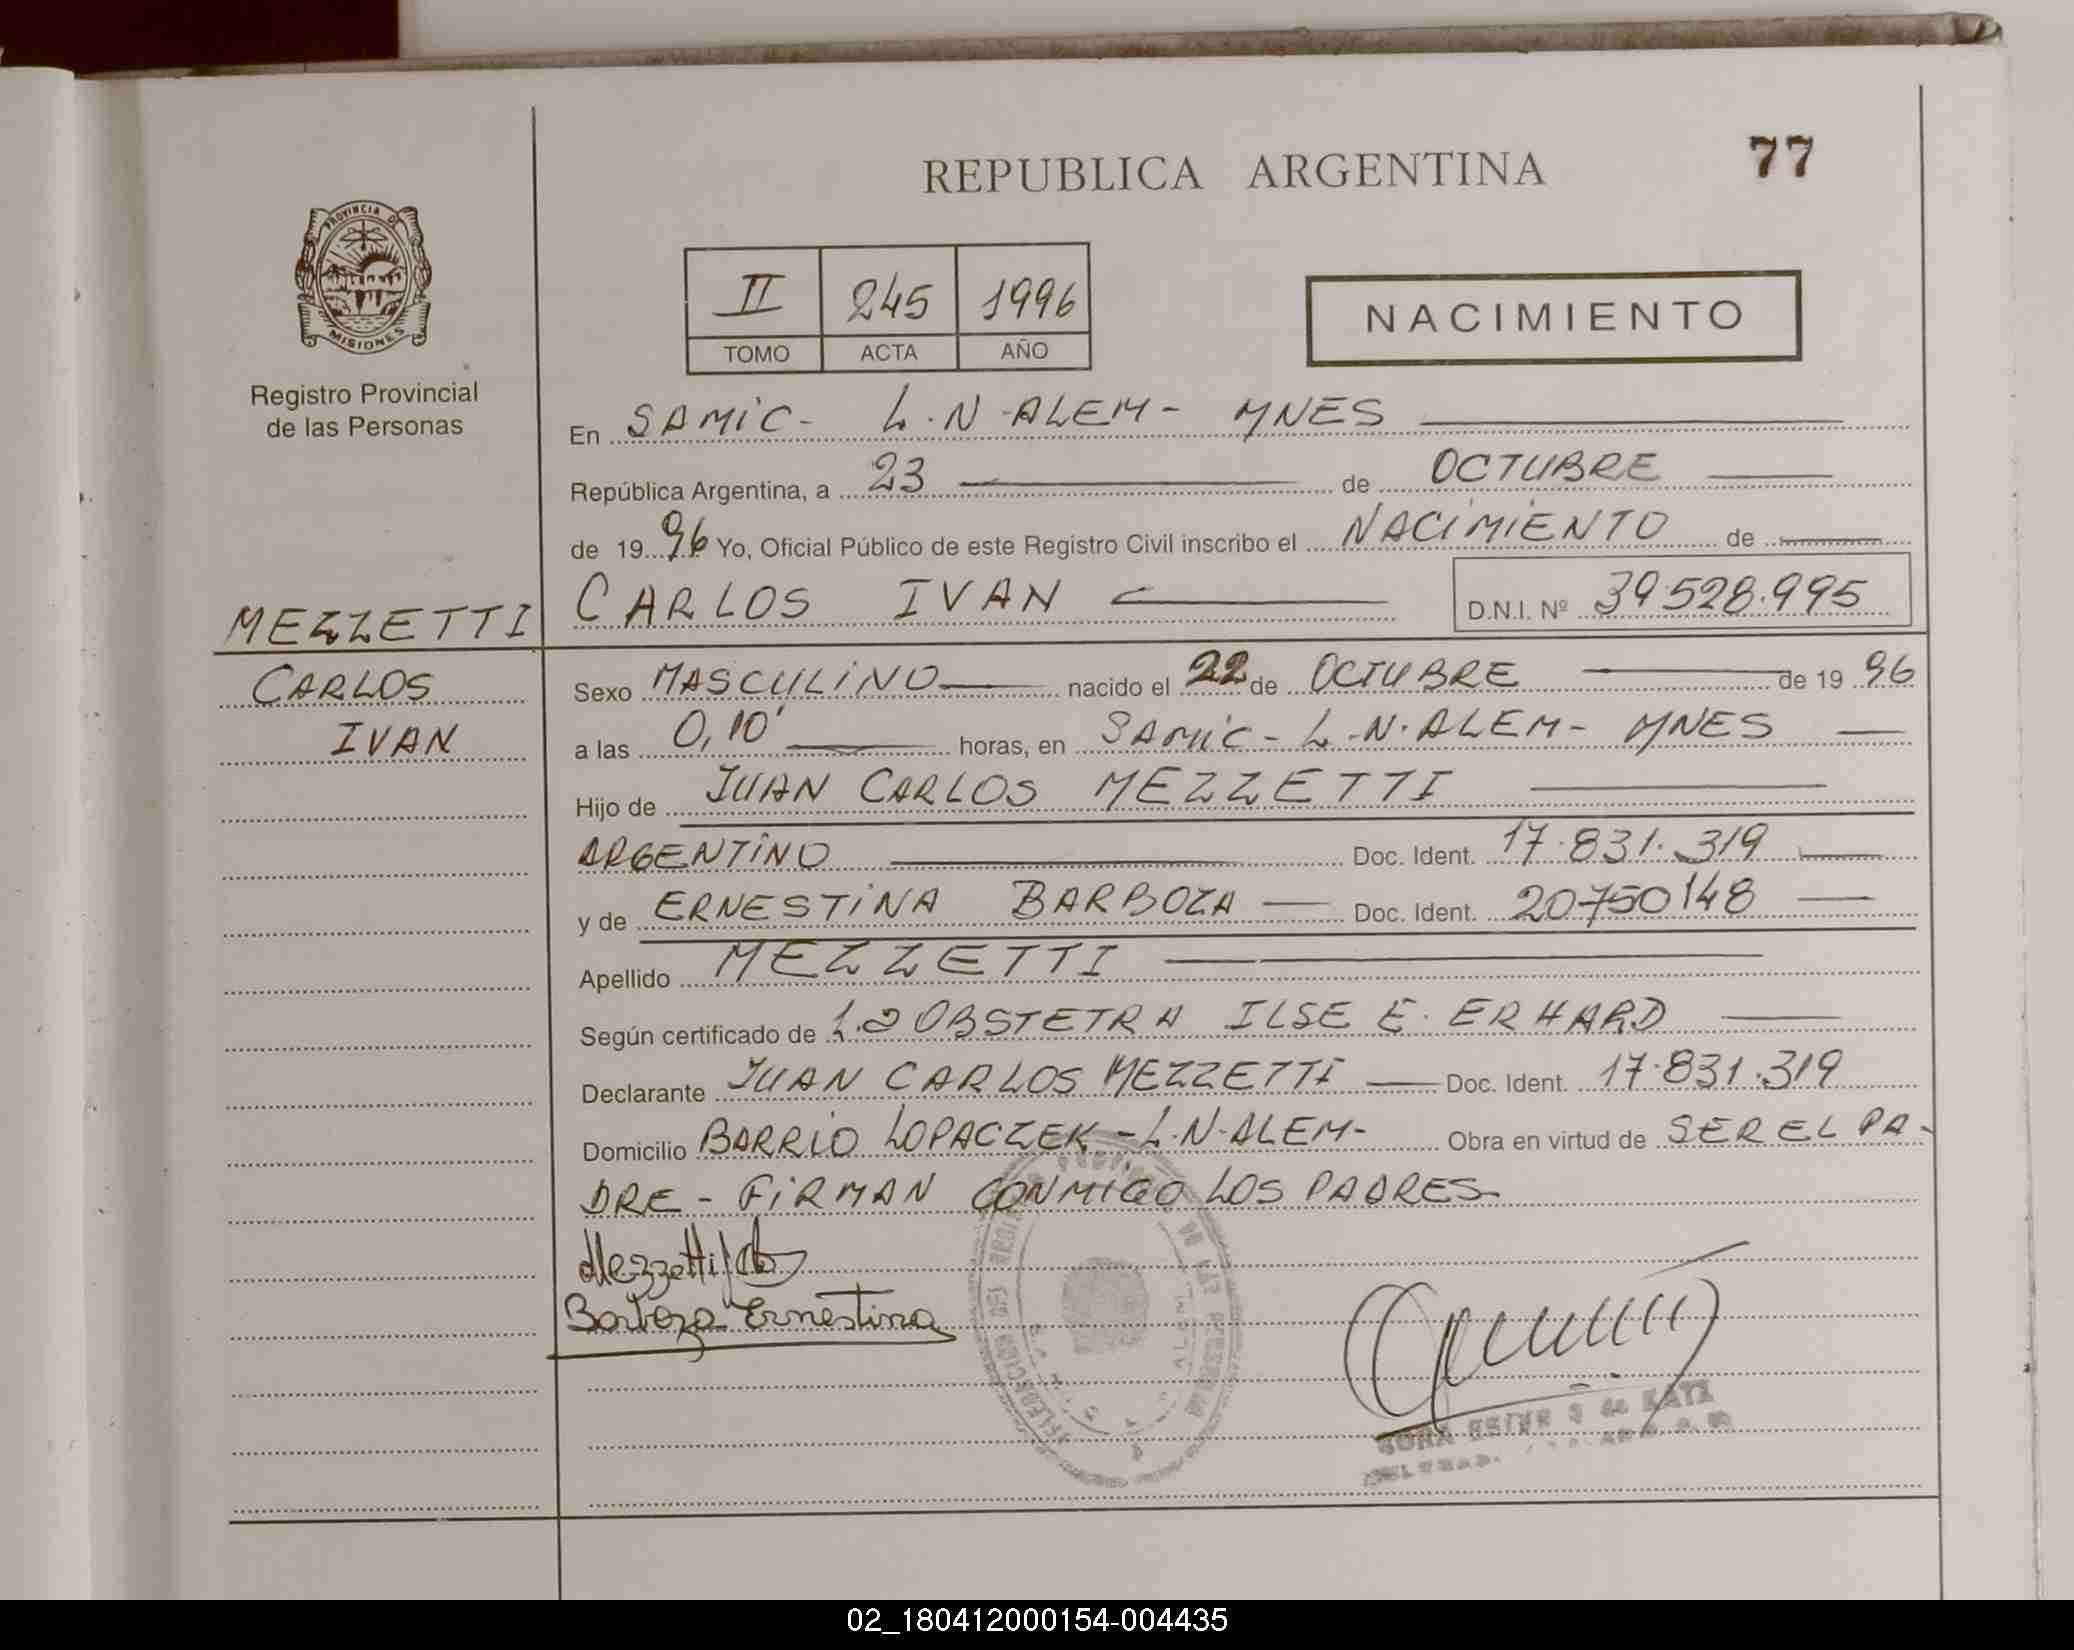 REPUBLICA ARGENTINA
77
PROVINCIA DE
MISIONES
Registro Provincial
de las Personas
II 245 1996
TOMO ACTA AÑO
NACIMIENTO
En SAMIC - L.N. ALEM - MNES
República Argentina, a 23 de OCTUBRE
de 19 96 Yo, Oficial Público de este Registro Civil inscribo el NACIMIENTO de
CARLOS IVAN D.N.I. Nº 39.528.995
MEZZETTI
CARLOS
IVAN
Sexo MASCULINO nacido el 22 de OCTUBRE de 19 96
a las 0,10' horas, en SAMIC - L.N. ALEM - MNES
Hijo de JUAN CARLOS MEZZETTI
ARGENTINO Doc. Ident. 17.831.319
y de ERNESTINA BARBOZA Doc. Ident. 20750148
Apellido MEZZETTI
Según certificado de La OBSTETRA ILSE E. ERHARD
Declarante JUAN CARLOS MEZZETTI Doc. Ident. 17.831.319
Domicilio BARRIO LOPACZEK - L.N. ALEM - Obra en virtud de SER EL PA-
DRE - FIRMAN CONMIGO LOS PADRES-
Mezzetti
Barboza Ernestina
02_180412000154-004435